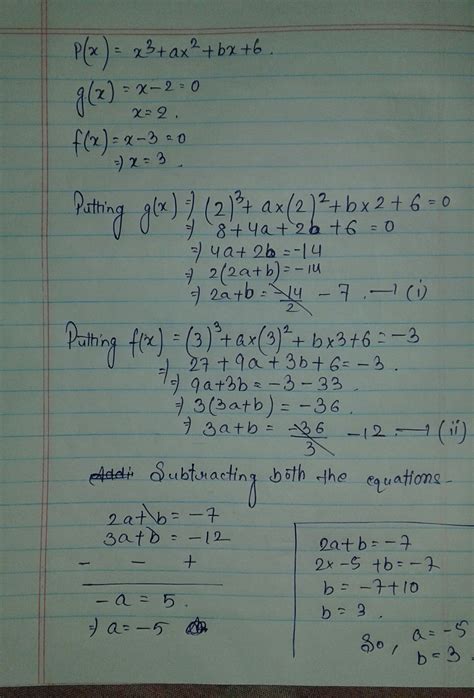 P(x) = x³+ax²+bx+6.
g(x) = x-2=0
x=2.
f(x)=x-3=0
⇒ x=3.
Putting g(x) ⇒ (2)³+a×(2)²+b×2+6=0
⇒ 8+4a+2b+6=0
⇒ 4a+2b=-14
⇒ 2(2a+b)=-14
⇒ 2a+b = -14/2 -7. —(i)
Putting f(x) = (3)³+a×(3)²+b×3+6=-3
⇒ 27+9a+3b+6=-3.
⇒ 9a+3b=-3-33.
⇒ 3(3a+b)=-36.
⇒ 3a+b = -36/3 -12 —(ii)
Subtracting both the equations-
2a+b=-7
3a+b=-12
- - +
-a = 5.
⇒ a=-5
2a+b=-7
2×-5+b=-7
b=-7+10
b=3.
So, a=-5
b=3.